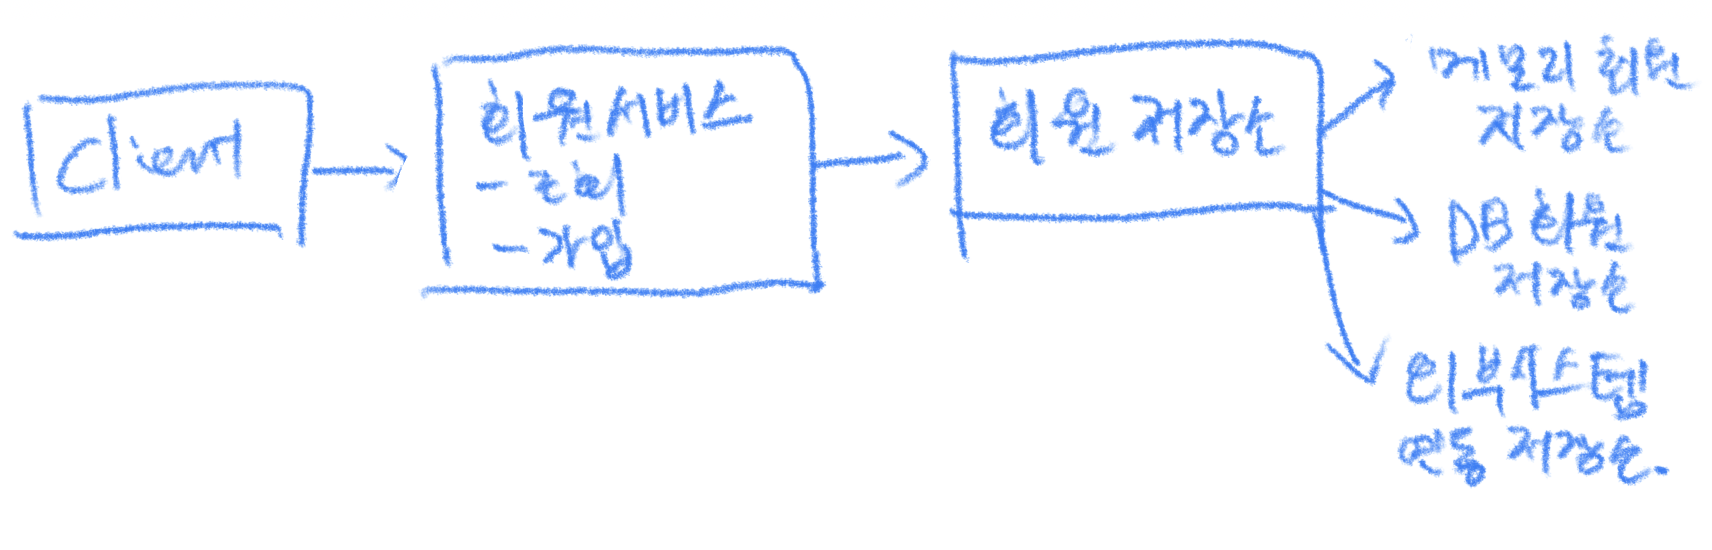 Client
회원서비스
- 조회
- 가입
회원 저장소
메모리 회원
저장소
DB 회원
저장소
외부시스템
연동 저장소.